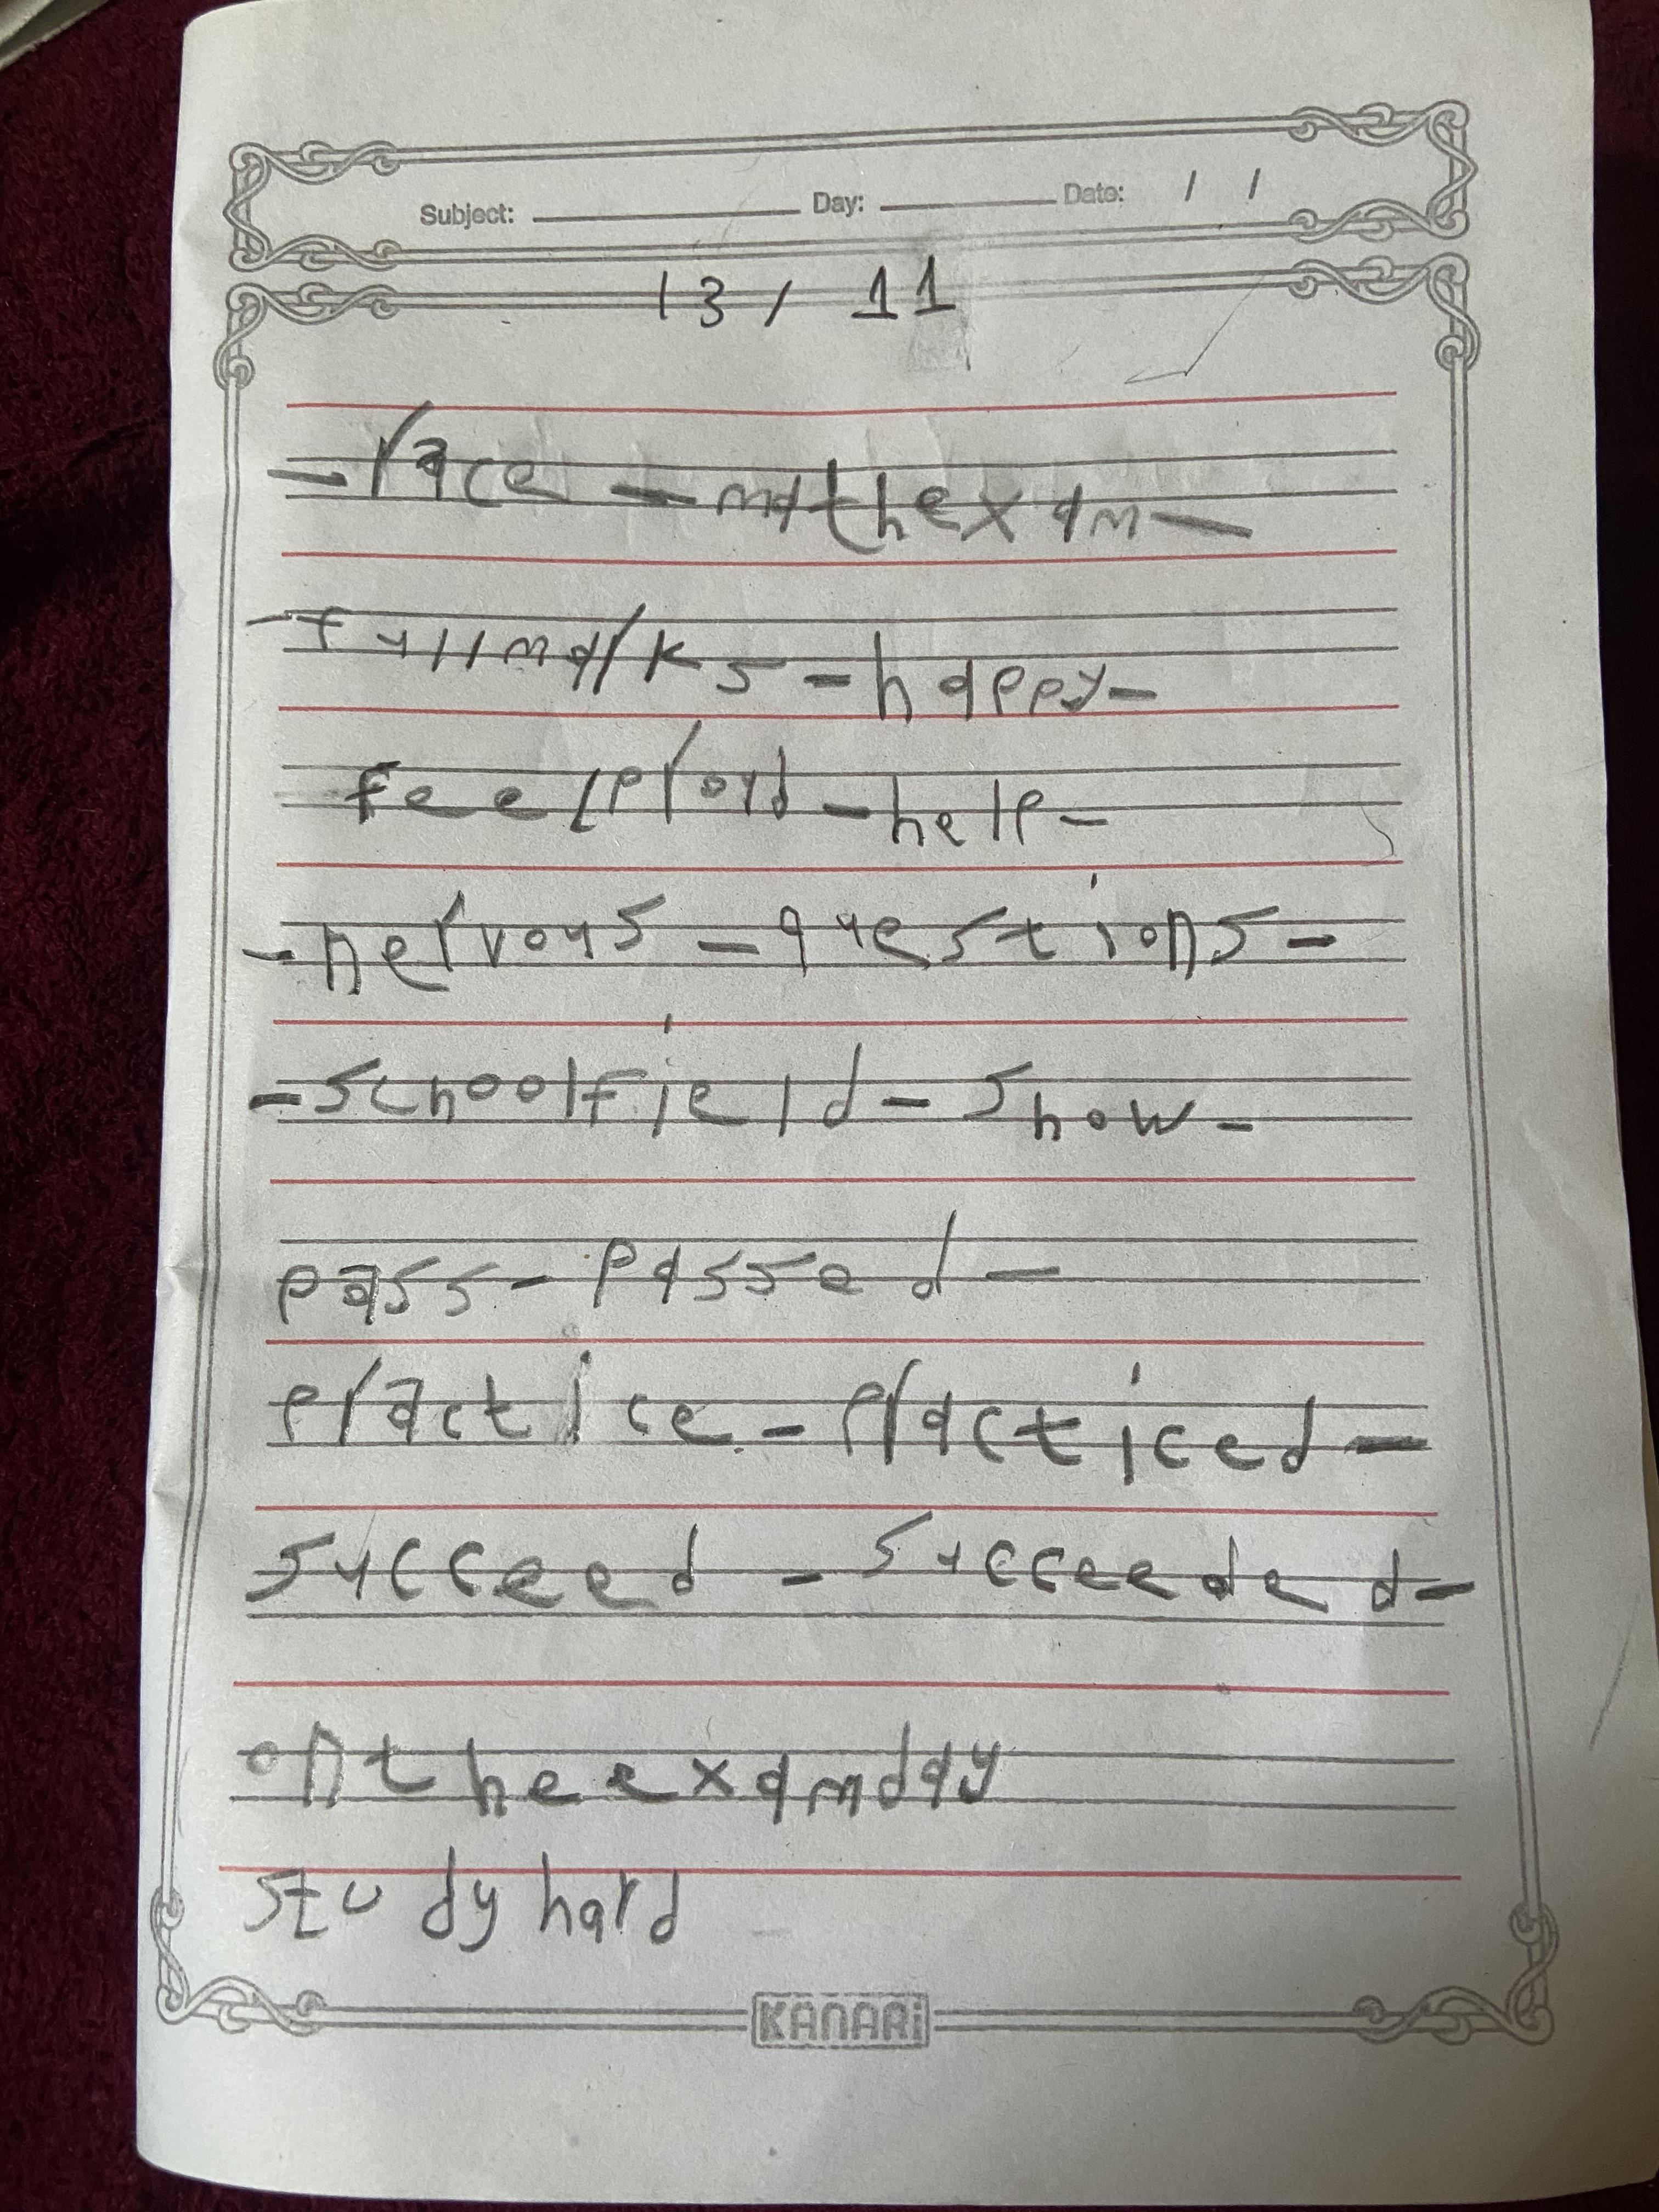 Subject: Day: Date: / /
13 / 11
- race - mathexam -
- fullmarks - happy -
feelproud - help -
- nervous - questions -
- schoolfield - show -
pass - passed -
practice - practiced -
succeed - succeeded -
ontheexamday
study hard
KANARi